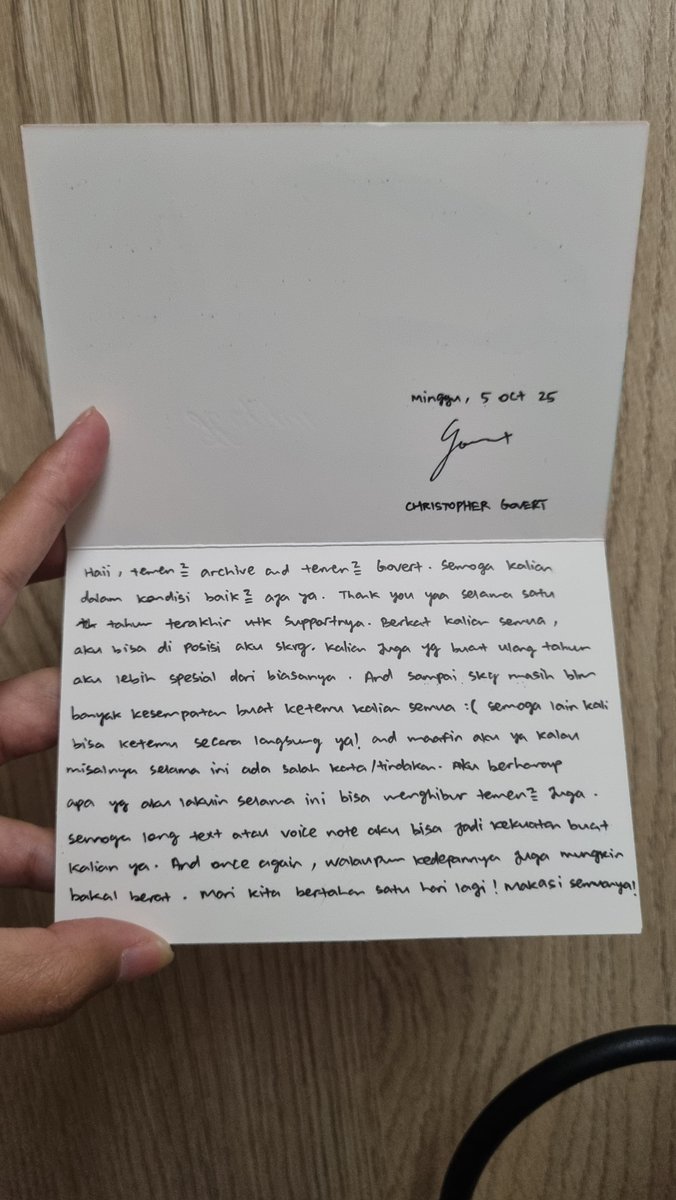 Minggu, 5 Oct 25
CHRISTOPHER GOVERT
Haii, temen² archive and temen² Govert. Semoga kalian
dalam kondisi baik² aja ya. Thank you yaa selama satu
tahun terakhir utk supportnya. Berkat kalian semua,
aku bisa di posisi aku skrg. Kalian juga yg buat ulang tahun
aku lebih spesial dari biasanya. And sampai skg masih blm
banyak kesempatan buat ketemu kalian semua :( semoga lain kali
bisa ketemu secara langsung ya! and maafin aku ya kalau
misalnya selama ini ada salah kata/tindakan. Aku berharap
apa yg aku lakuin selama ini bisa menghibur temen² juga.
semoga long text atau voice note aku bisa jadi kekuatan buat
kalian ya. And once again, walaupun kedepannya juga mungkin
bakal berat. Mari kita bertahan satu hari lagi! Makasi semuanya!